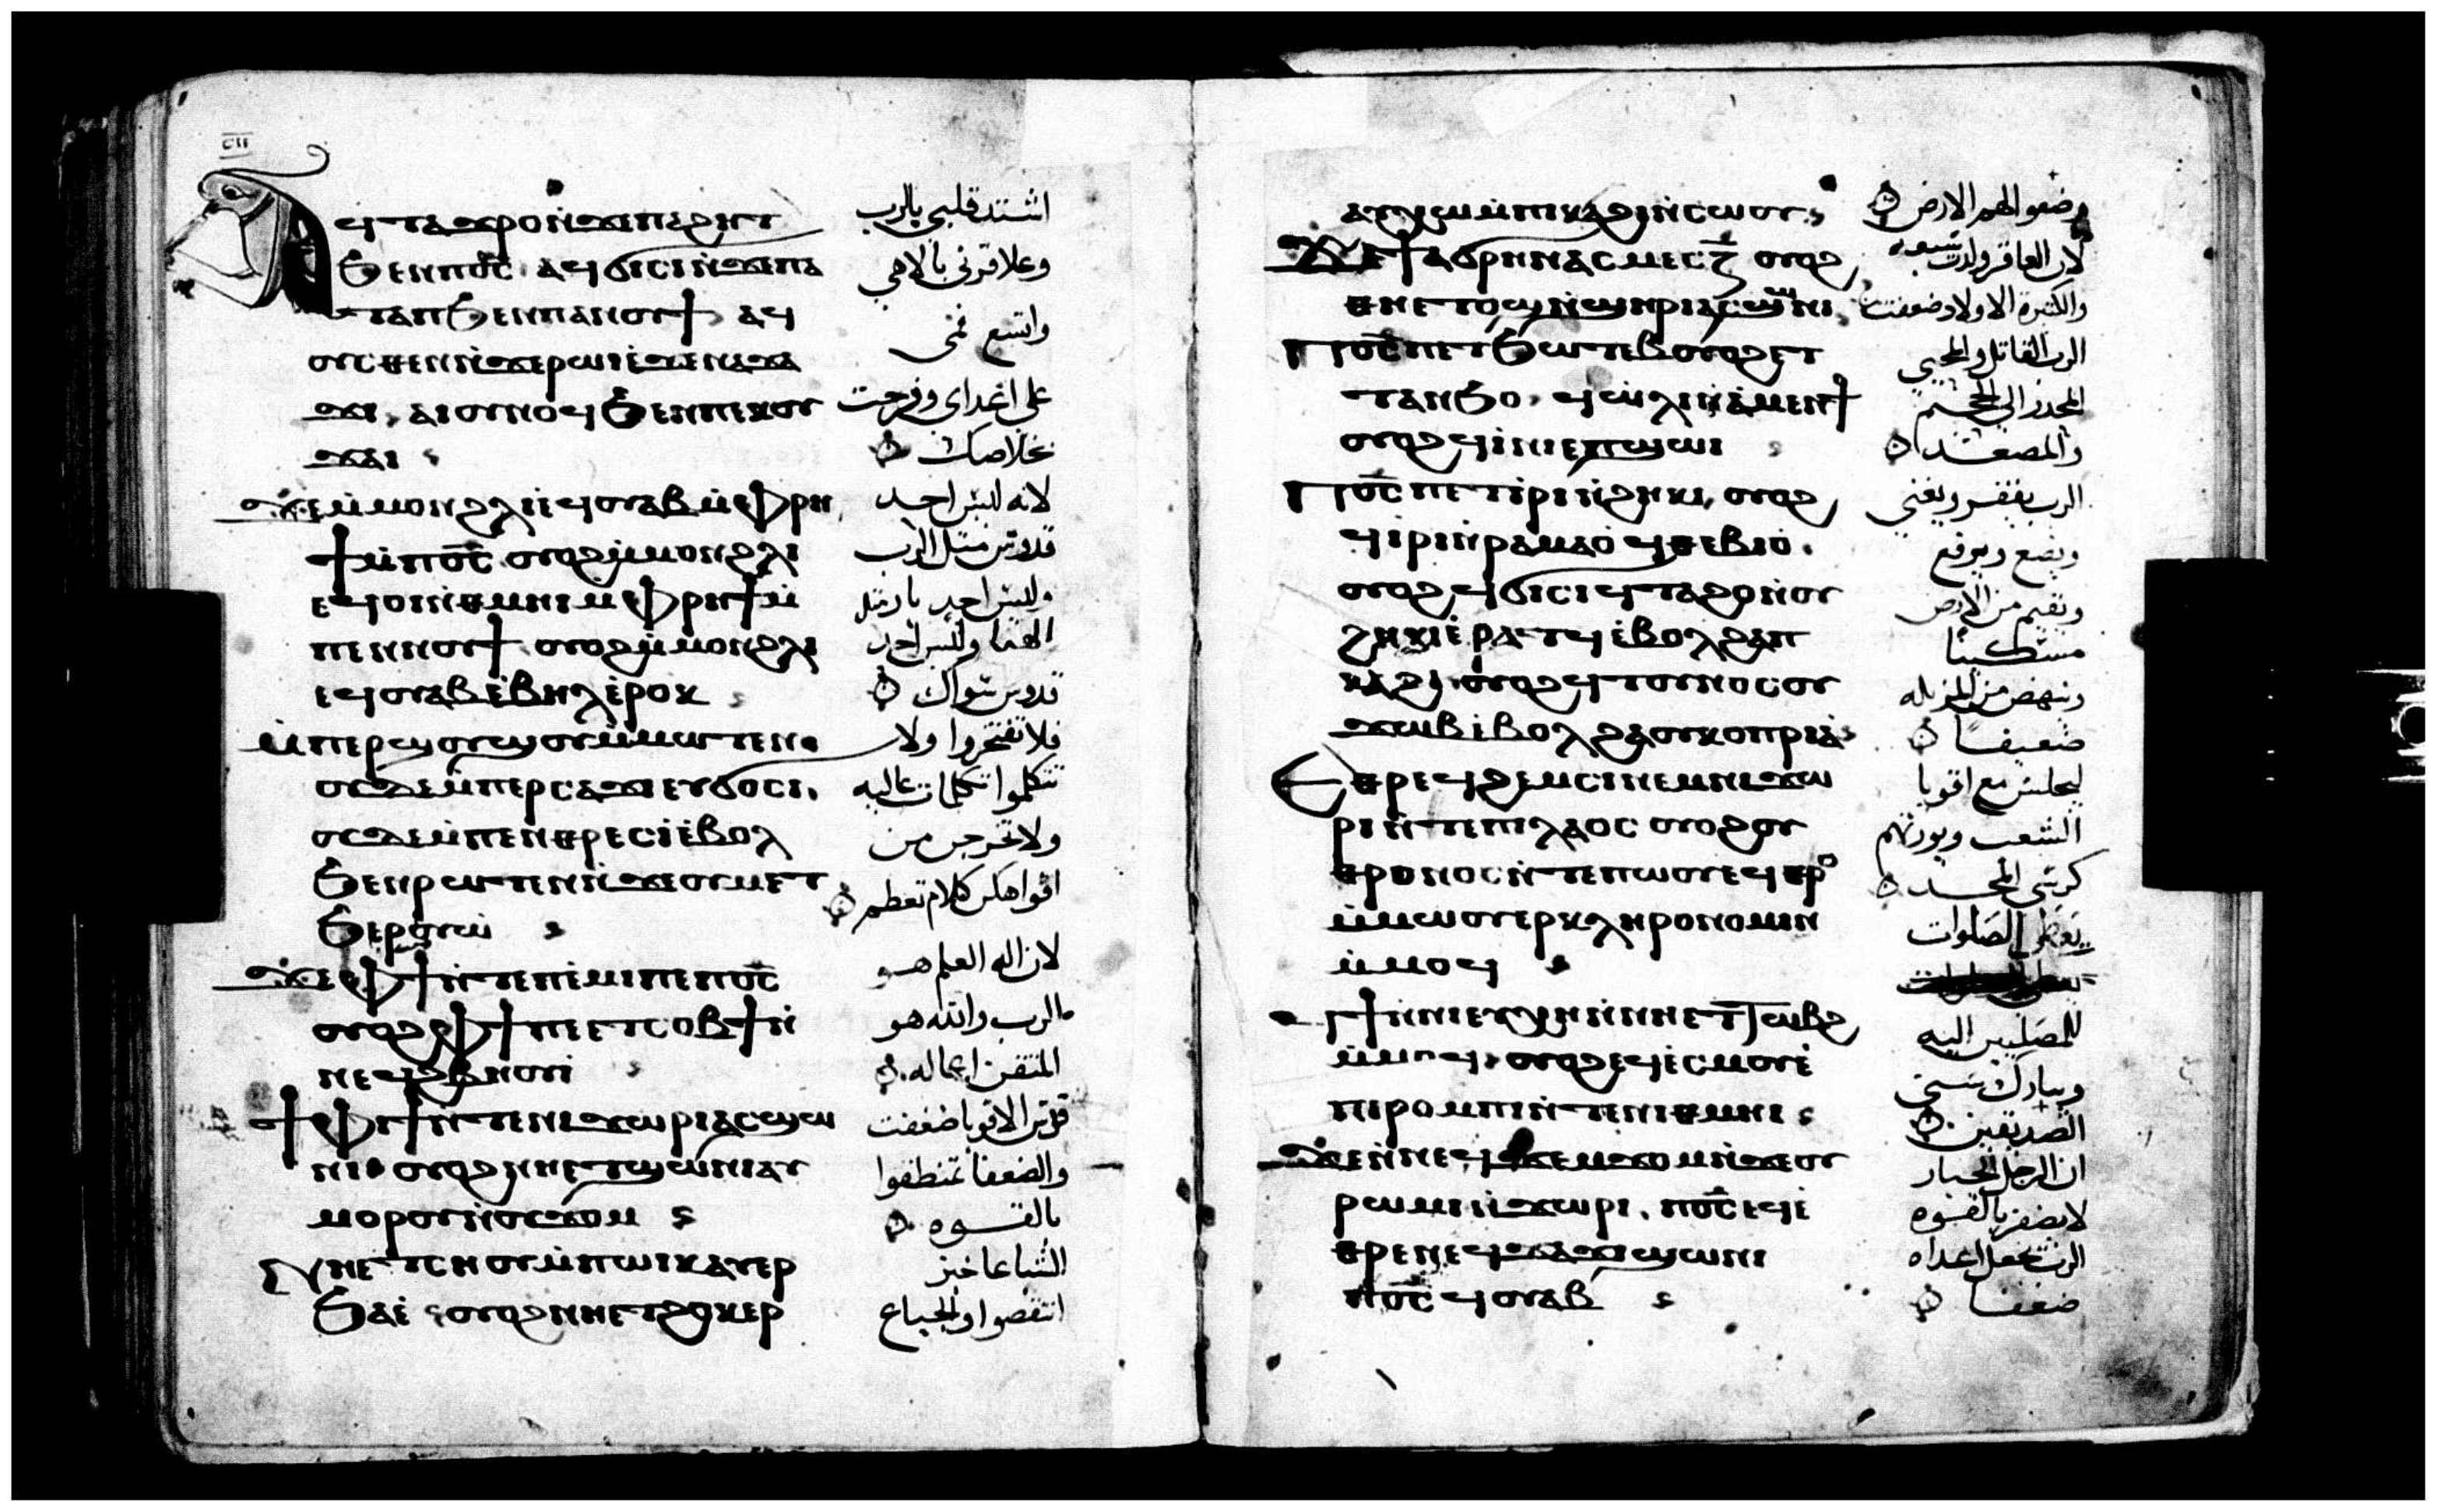 ⲥⲏ
ⲁϥⲧⲁϫⲣⲟ ⲛ̀ϫⲉ ⲡⲁϩⲏⲧ
ϧⲉⲛ ⲡⲟ̅ⲥ̅ ⲁϥϭⲓⲥⲓ ⲛ̀ϫⲉ ⲡⲁ
ⲧⲁⲡ ϧⲉⲛ ⲡⲁⲛⲟⲩϯ ⲁϥ
ⲟⲩⲥⲑⲉⲛ ⲛ̀ϫⲉ ⲣⲱⲓ ⲉ̀ϫⲉⲛ ⲛⲁϫⲁ
ϫⲓ ⲁⲓⲟⲩⲛⲟϥ ϧⲉⲛ ⲡⲉⲕⲟⲩ
ϫⲁⲓ
ϫⲉ ⲙ̀ⲙⲟⲛ ϩⲗⲓ ⲉ̀ϥⲟⲩⲁⲃ ⲙ̀ⲫⲣⲏ
ϯ ⲙ̀ⲡⲟ̅ⲥ̅ ⲟⲩⲟϩ ⲙ̀ⲙⲟⲛ ϩⲗⲓ
ⲉϥⲟⲓ ⲛ̀ⲑⲙⲏⲓ ⲙ̀ⲫⲣⲏϯ ⲙ̀
ⲡⲉⲛⲛⲟⲩϯ ⲟⲩⲟϩ ⲙ̀ⲙⲟⲛ ϩⲗⲓ
ⲉϥⲟⲩⲁⲃ ⲉ̀ⲃⲏⲗ ⲉ̀ⲣⲟⲕ
ⲙ̀ⲡⲉⲣϣⲟⲩϣⲟⲩ ⲙ̀ⲙⲱⲧⲉⲛ
ⲟⲩⲇⲉ ⲙ̀ⲡⲉⲣⲥⲁϫⲓ ⲉⲩϭⲟⲥⲓ
ⲟⲩⲇⲉ ⲙ̀ⲡⲉⲛⲑⲣⲉⲥⲓ̀ ⲉ̀ⲃⲟⲗ
ϧⲉⲛ ⲣⲱⲧⲉⲛ ⲛ̀ϫⲉ ⲟⲩⲙⲉⲧ
ϧⲉⲣⲟⲩⲱ
ϫⲉ ⲫϯ ⲛ̀ⲧⲉ ⲡⲉ̀ⲙⲓ ⲡⲉ ⲡⲟ̅ⲥ̅
ⲟⲩⲟϩ ⲫϯ ⲡⲉⲧⲥⲟⲃϯ ⲛ̀
ⲛⲉϥϩⲃⲏⲟⲩⲓ̀
ϯⲫⲓϯ ⲛ̀ⲧⲉ ⲛⲓϫⲱⲣⲓ ⲁⲥϣⲱ
ⲛⲓ ⲟⲩⲟϩ ⲛⲏⲉⲧϣⲱⲛⲓ ⲁⲩ
ⲙⲟⲣⲟⲩ ⲛ̀ⲟⲩϫⲟⲙ
ⲛⲏⲉⲧⲥⲏⲟⲩ ⲙ̀ⲡⲱⲓⲕ ⲁⲩⲉⲣ
ϧⲁⲉ̀ ⲟⲩⲟϩ ⲛⲏⲉⲧϩⲟⲕⲉⲣ
اشتد قلبي بالرب
وعلا قرني بالاهي
واتسع فمي
على اعداي وفرحت
بخلاصك
لانه ليس احد
قدوس مثل الرب
وليس احد بار مثل
الهنا وليس احد
قدوس سواك
فلا تفتخروا ولا
تتكلموا تكلمات عاليه
ولا تخرج من
افواهكن كلام تعظم
لان اله العلم هو
الرب والله هو
المتقن اعماله
قوس الاقويا ضعفت
والضعفا تمنطقوا
بالقوه
الشباعا خبز
انتقصوا والجياع
ⲁⲩⲭⲱ ⲙ̀ⲡⲕⲁϩⲓ ⲛ̀ⲥⲱⲟⲩ
ϫⲉ ϯⲁϭⲣⲏⲛ ⲁⲥⲙⲉⲥ ⲍ̅ ⲟⲩⲟϩ
ⲑⲏⲉⲧⲟϣ ⲛ̀ϣⲏⲣⲓ ⲁⲥϣⲱⲛⲓ
ⲡⲟ̅ⲥ̅ ⲡⲉⲧϧⲱⲧⲉⲃ ⲟⲩⲟϩ ⲉⲧ
ⲧⲁⲛϧⲟ ϥⲱ̀ⲗⲓ ⲛ̀ⲁⲙⲉⲛϯ
ⲟⲩⲟϩ ϥⲓ̀ⲛⲓ ⲉⲡϣⲱⲓ
ⲡⲟ̅ⲥ̅ ⲡⲉⲧⲓ̀ⲣⲓ ⲛ̀ϩⲏⲕⲓ ⲟⲩⲟϩ
ϥⲓ̀ⲣⲓ ⲛ̀ⲣⲁⲙⲁⲟ̀ ϥⲑⲉⲃⲓⲟ̀
ⲟⲩⲟϩ ϥϭⲓⲥⲓ ϥⲧⲁϩⲟ ⲛ̀ⲟⲩ
ϩⲏⲕⲓ ⲉ̀ⲣⲁⲧϥ ⲉ̀ⲃⲟⲗ ϩⲁ ⲡ
ⲕⲁϩⲓ ⲟⲩⲟϩ ϥⲧⲟⲩⲛⲟⲥ ⲟⲩ
ϫⲱⲃ ⲉ̀ⲃⲟⲗ ϩⲁ ⲟⲩⲕⲟⲡⲣⲓⲁ̀
ⲉⲑⲣⲉϥϩⲉⲙⲥⲓ ⲛⲉⲙ ⲛⲓϫⲱ
ⲣⲓ ⲛ̀ⲧⲉ ⲡⲓⲗⲁⲟⲥ ⲟⲩⲟϩ ⲟⲩ
ⲑⲣⲟⲛⲟⲥ ⲛ̀ⲧⲉ ⲡⲱⲟⲩ ⲉϥⲑⲣⲟ
ⲙ̀ⲙⲱⲟⲩ ⲉⲣⲕⲗⲏⲣⲟⲛⲟⲙⲓⲛ
ⲙ̀ⲙⲟϥ
ϥϯ ⲛ̀ⲛⲓⲉⲩⲭⲏ ⲛ̀ⲛⲏⲉⲧⲧⲱⲃϩ
ⲙ̀ⲙⲟϥ ⲟⲩⲟϩ ⲉϥⲉ̀ⲥⲙⲟⲩ ⲉ̀
ⲛⲓⲣⲟⲙⲡⲓ ⲛ̀ⲧⲉ ⲛⲓⲑⲙⲏⲓ
ϫⲉ ⲛ̀ⲛⲉϥϫⲉⲙϫⲟⲙ ⲛ̀ϫⲉ ⲟⲩ
ⲣⲱⲙⲓ ⲛ̀ϫⲱⲣⲓ ⲡⲟ̅ⲥ̅ ⲉϥⲉ̀
ⲑⲣⲉ ⲛⲉϥϫⲁϫⲓ ϣⲱⲛⲓ
ⲡⲟ̅ⲥ̅ ϥⲟⲩⲁⲃ
وضعوا لهم الارض
لان العاقر ولدت سبعه
والكثيرة الاولاد ضعفت
الرب القاتل والمحيي
المحدر الى الجحيم
والمصعد
الرب يفقر ويغني
ويضع ويرفع
ويقيم من الارض
مسكينا
وينهض من المزبله
ضعيفا
ليجلس مع اقويا
الشعب ويورثهم
كرسي المجد
يعطي الصلوات
للمصليين اليه
ويبارك سني
الصديقين
ان الرجل الجبار
لا يضفر بالقوه
الرب يجعل اعداه
ضعفا